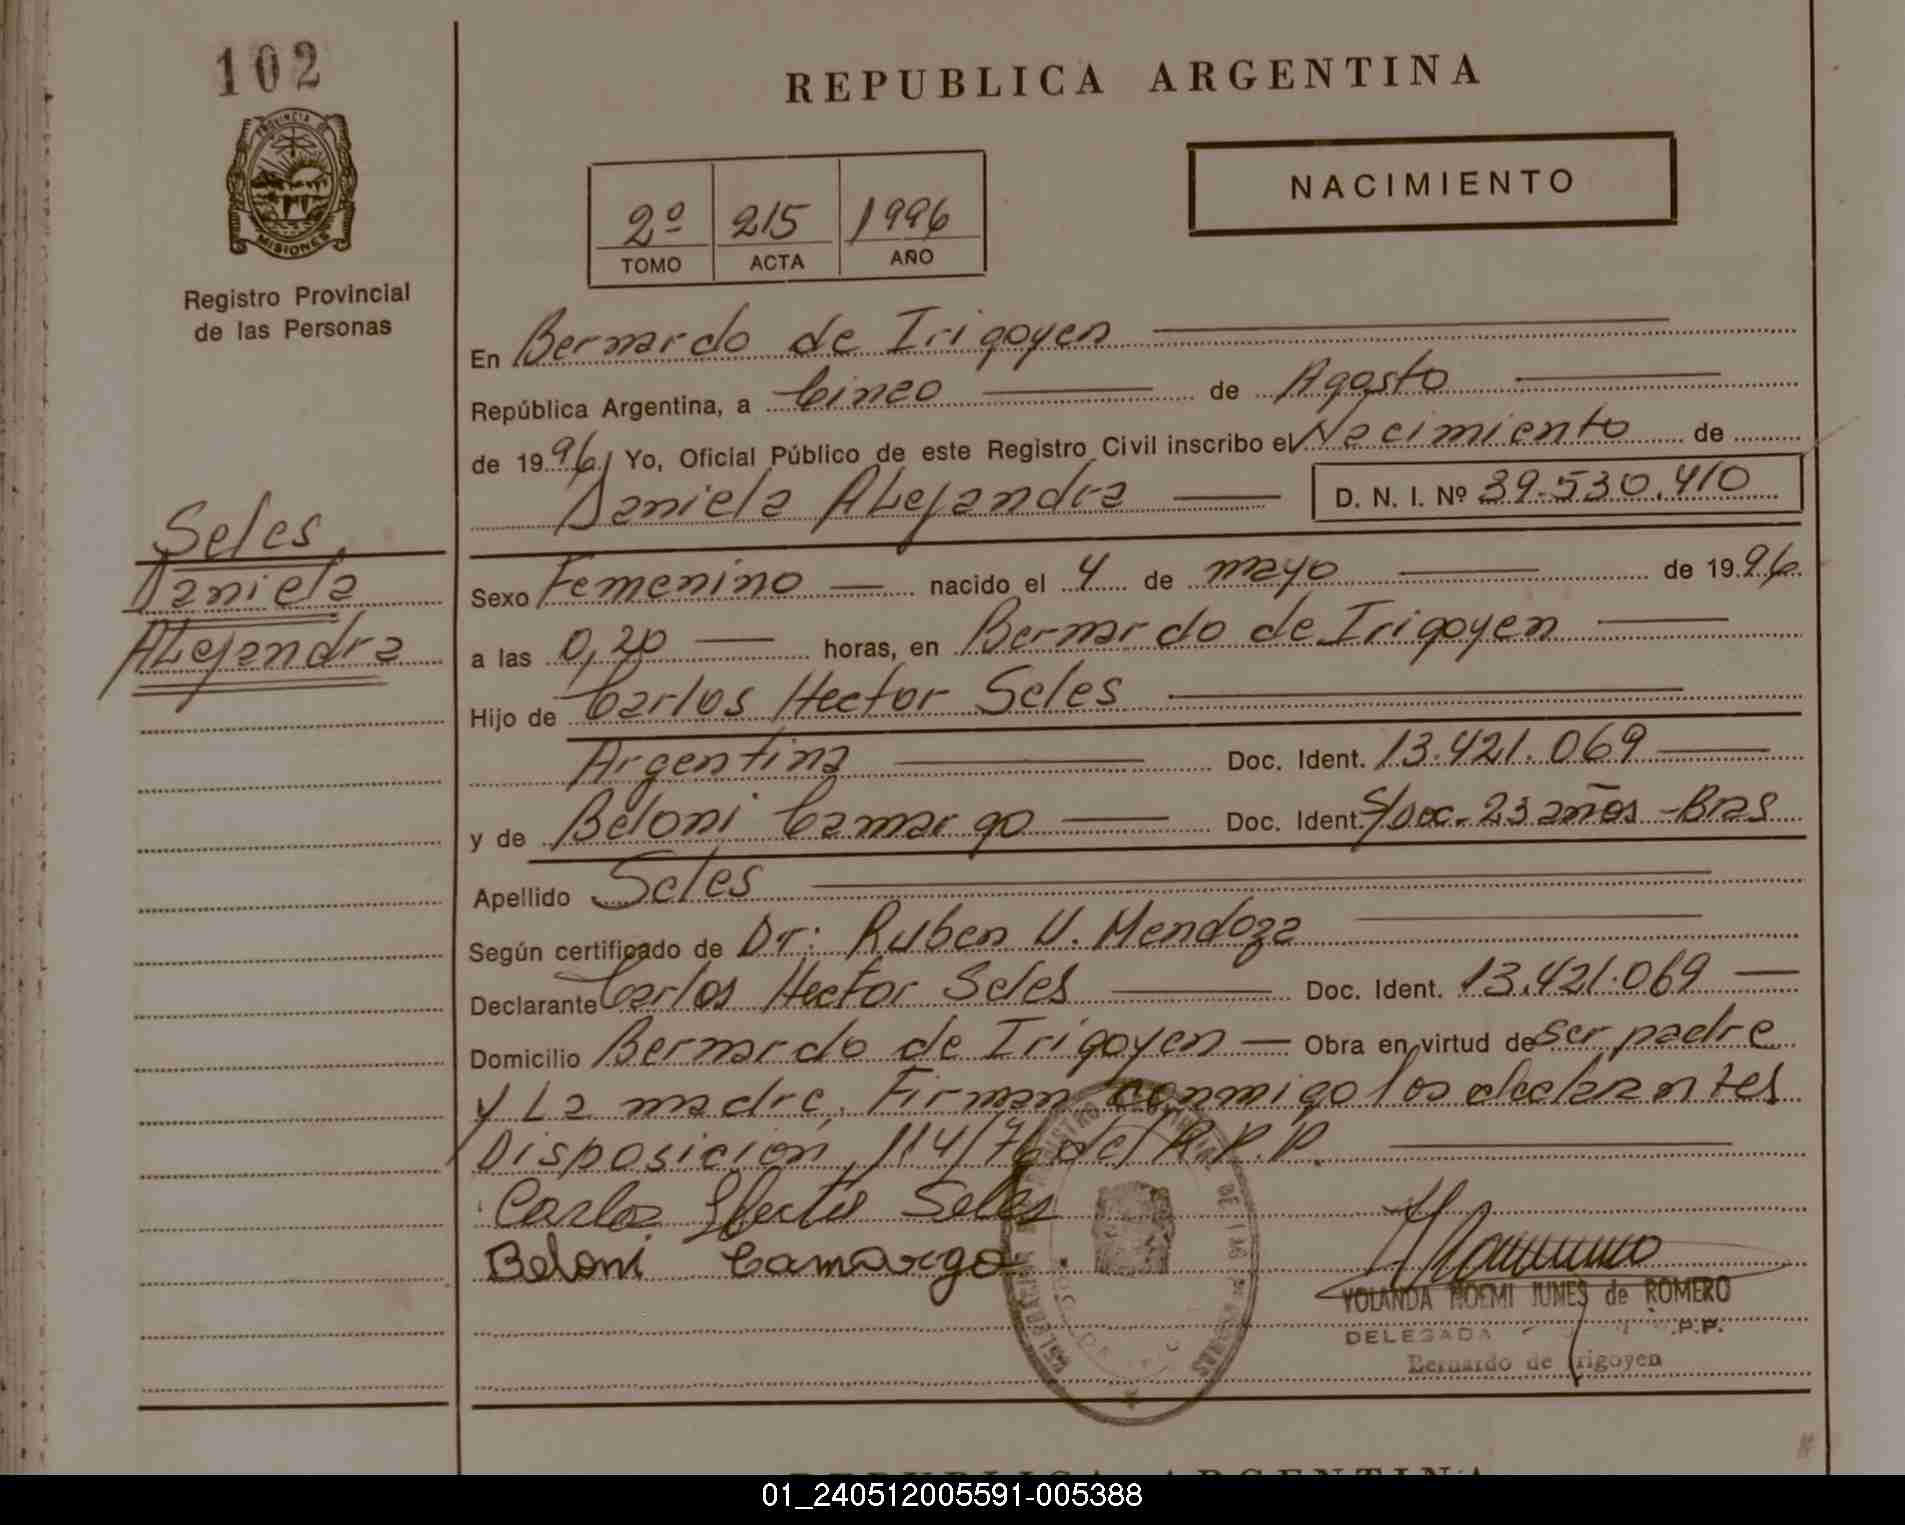 102
REPUBLICA ARGENTINA
PROVINCIA DE
MISIONES
Registro Provincial
de las Personas
NACIMIENTO
2º 215 1996
TOMO ACTA AÑO
En Bernardo de Irigoyen
República Argentina, a Cinco de Agosto
de 1996 Yo, Oficial Público de este Registro Civil inscribo el Nacimiento de
Daniela ALejandra D. N. I. Nº 39.530.410
Seles
Daniela
ALejandra
Sexo Femenino nacido el 4 de mayo de 1996
a las 0,20 horas, en Bernardo de Irigoyen
Hijo de Carlos Hector Seles
Argentina Doc. Ident. 13.421.069
y de Beloni Camargo Doc. Ident. S/Doc. 23 años - Bras
Apellido Seles
Según certificado de Dr: Ruben U. Mendoza
Declarante Carlos Hector Seles Doc. Ident. 13.421.069
Domicilio Bernardo de Irigoyen Obra en virtud de ser padre
y La madre, Firman conmigo los declarantes
Disposicion 114/76 del R.P.P.
Carlos Hector Seles
Beloni Camargo
YOLANDA NOEMI JUNES de ROMERO
DELEGADA P.P.
Bernardo de Irigoyen
REPUBLICA ARGENTINA
01_240512005591-005388